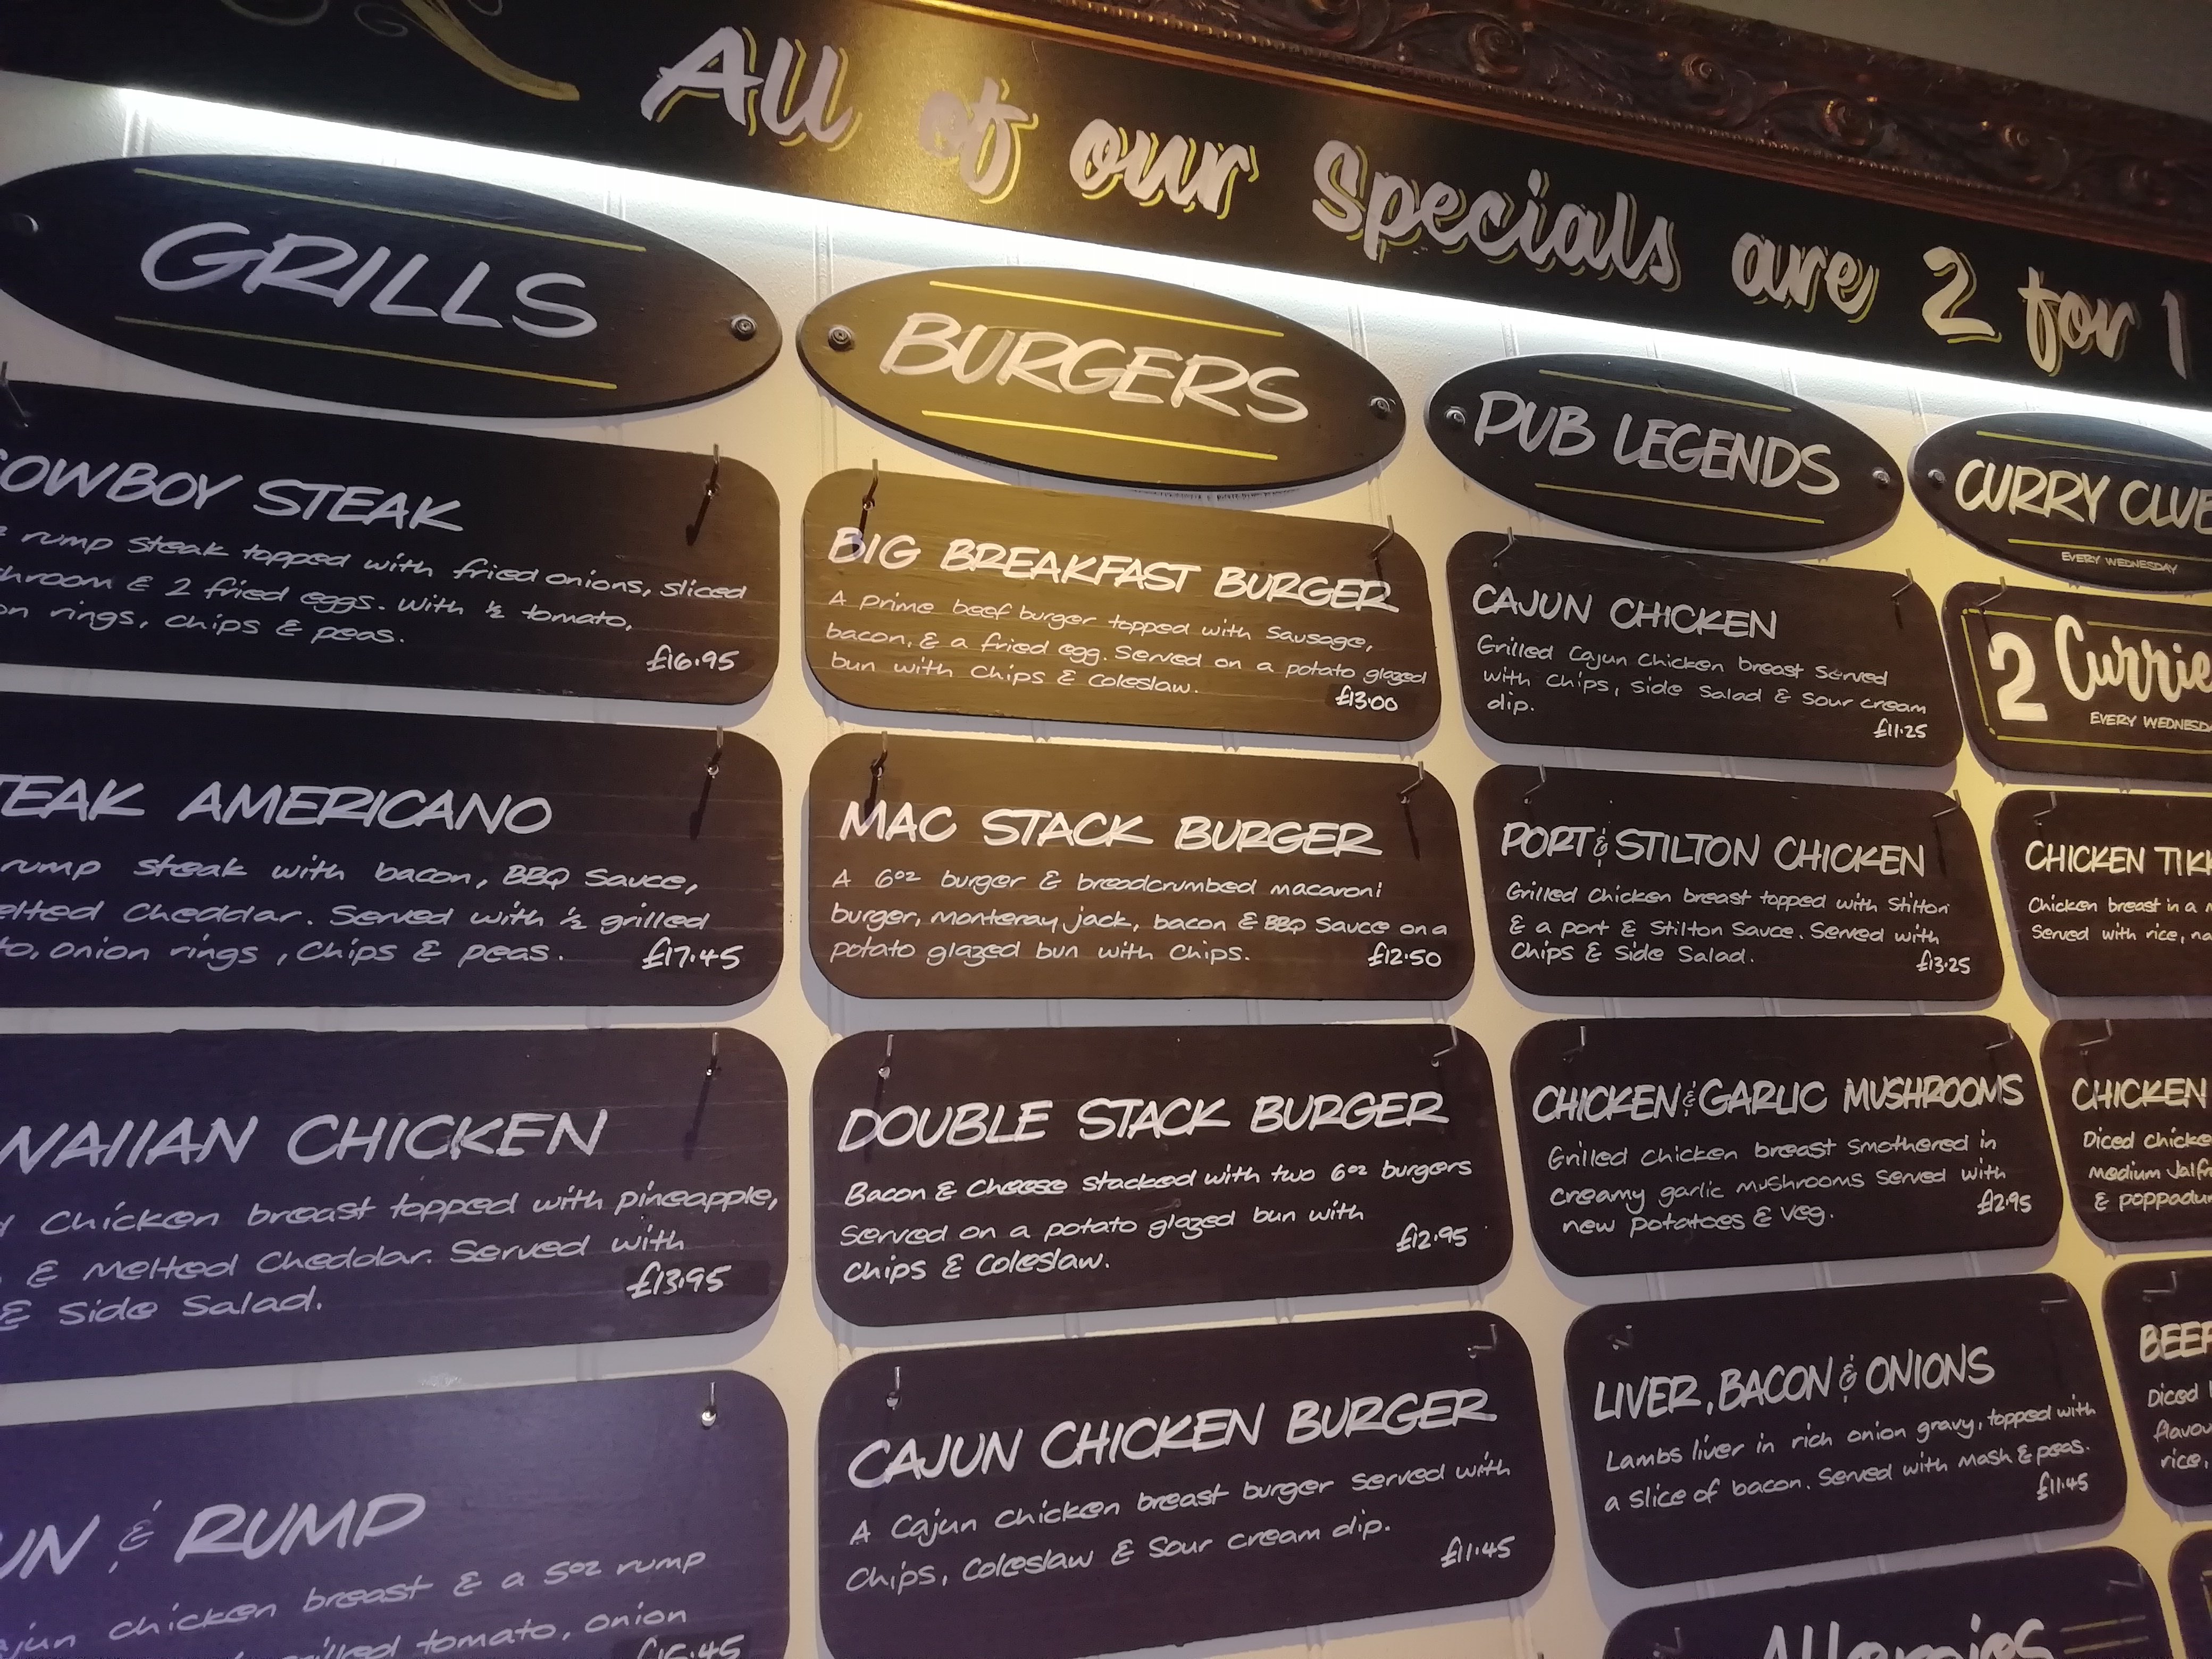 All of our Specials are 2 for 1
GRILLS
OWBOY STEAK
rump steak topped with fried onions, sliced
hroom & 2 fried eggs. With ½ tomato,
on rings, chips & peas.
£16.95
TEAK AMERICANO
rump steak with bacon, BBQ Sauce,
elted Cheddar. Served with ½ grilled
to, onion rings, Chips & peas.
£17.45
WAIIAN CHICKEN
Chicken breast topped with pineapple,
& Melted Cheddar. Served with
& Side Salad.
£13.95
UN & RUMP
ajun chicken breast & a 5oz rump
tomato, onion
BURGERS
BIG BREAKFAST BURGER
A prime beef burger topped with Sausage,
bacon, & a fried egg. Served on a potato glazed
bun with Chips & Coleslaw.
£13.00
MAC STACK BURGER
A 6oz burger & breadcrumbed macaroni
burger, monteray jack, bacon & BBQ Sauce on a
potato glazed bun with Chips.
£12.50
DOUBLE STACK BURGER
Bacon & Cheese stacked with two 6oz burgers
Served on a potato glazed bun with
Chips & Coleslaw.
£12.95
CAJUN CHICKEN BURGER
A Cajun Chicken breast burger served with
Chips, Coleslaw & Sour cream dip.
£11.45
PUB LEGENDS
CAJUN CHICKEN
Grilled Cajun Chicken breast Served
with Chips, Side Salad & Sour cream
dip.
£11.25
PORT & STILTON CHICKEN
Grilled Chicken breast topped with Stilton
& a port & Stilton Sauce. Served with
Chips & Side Salad.
£13.25
CHICKEN & GARLIC MUSHROOMS
Grilled Chicken breast Smothered in
Creamy garlic mushrooms Served with
new potatoes & veg.
£12.95
LIVER, BACON & ONIONS
Lambs liver in rich onion gravy, topped with
a slice of bacon. Served with Mash & peas.
£11.45
Allergies
CURRY CLUB
EVERY WEDNESDAY
2 Currie
EVERY WEDNESD
CHICKEN TIK
Chicken breast in a
Served with rice, na
CHICKEN
Diced Chicke
Medium Jalfr
& poppadu
BEEF
Diced
flavou
rice,